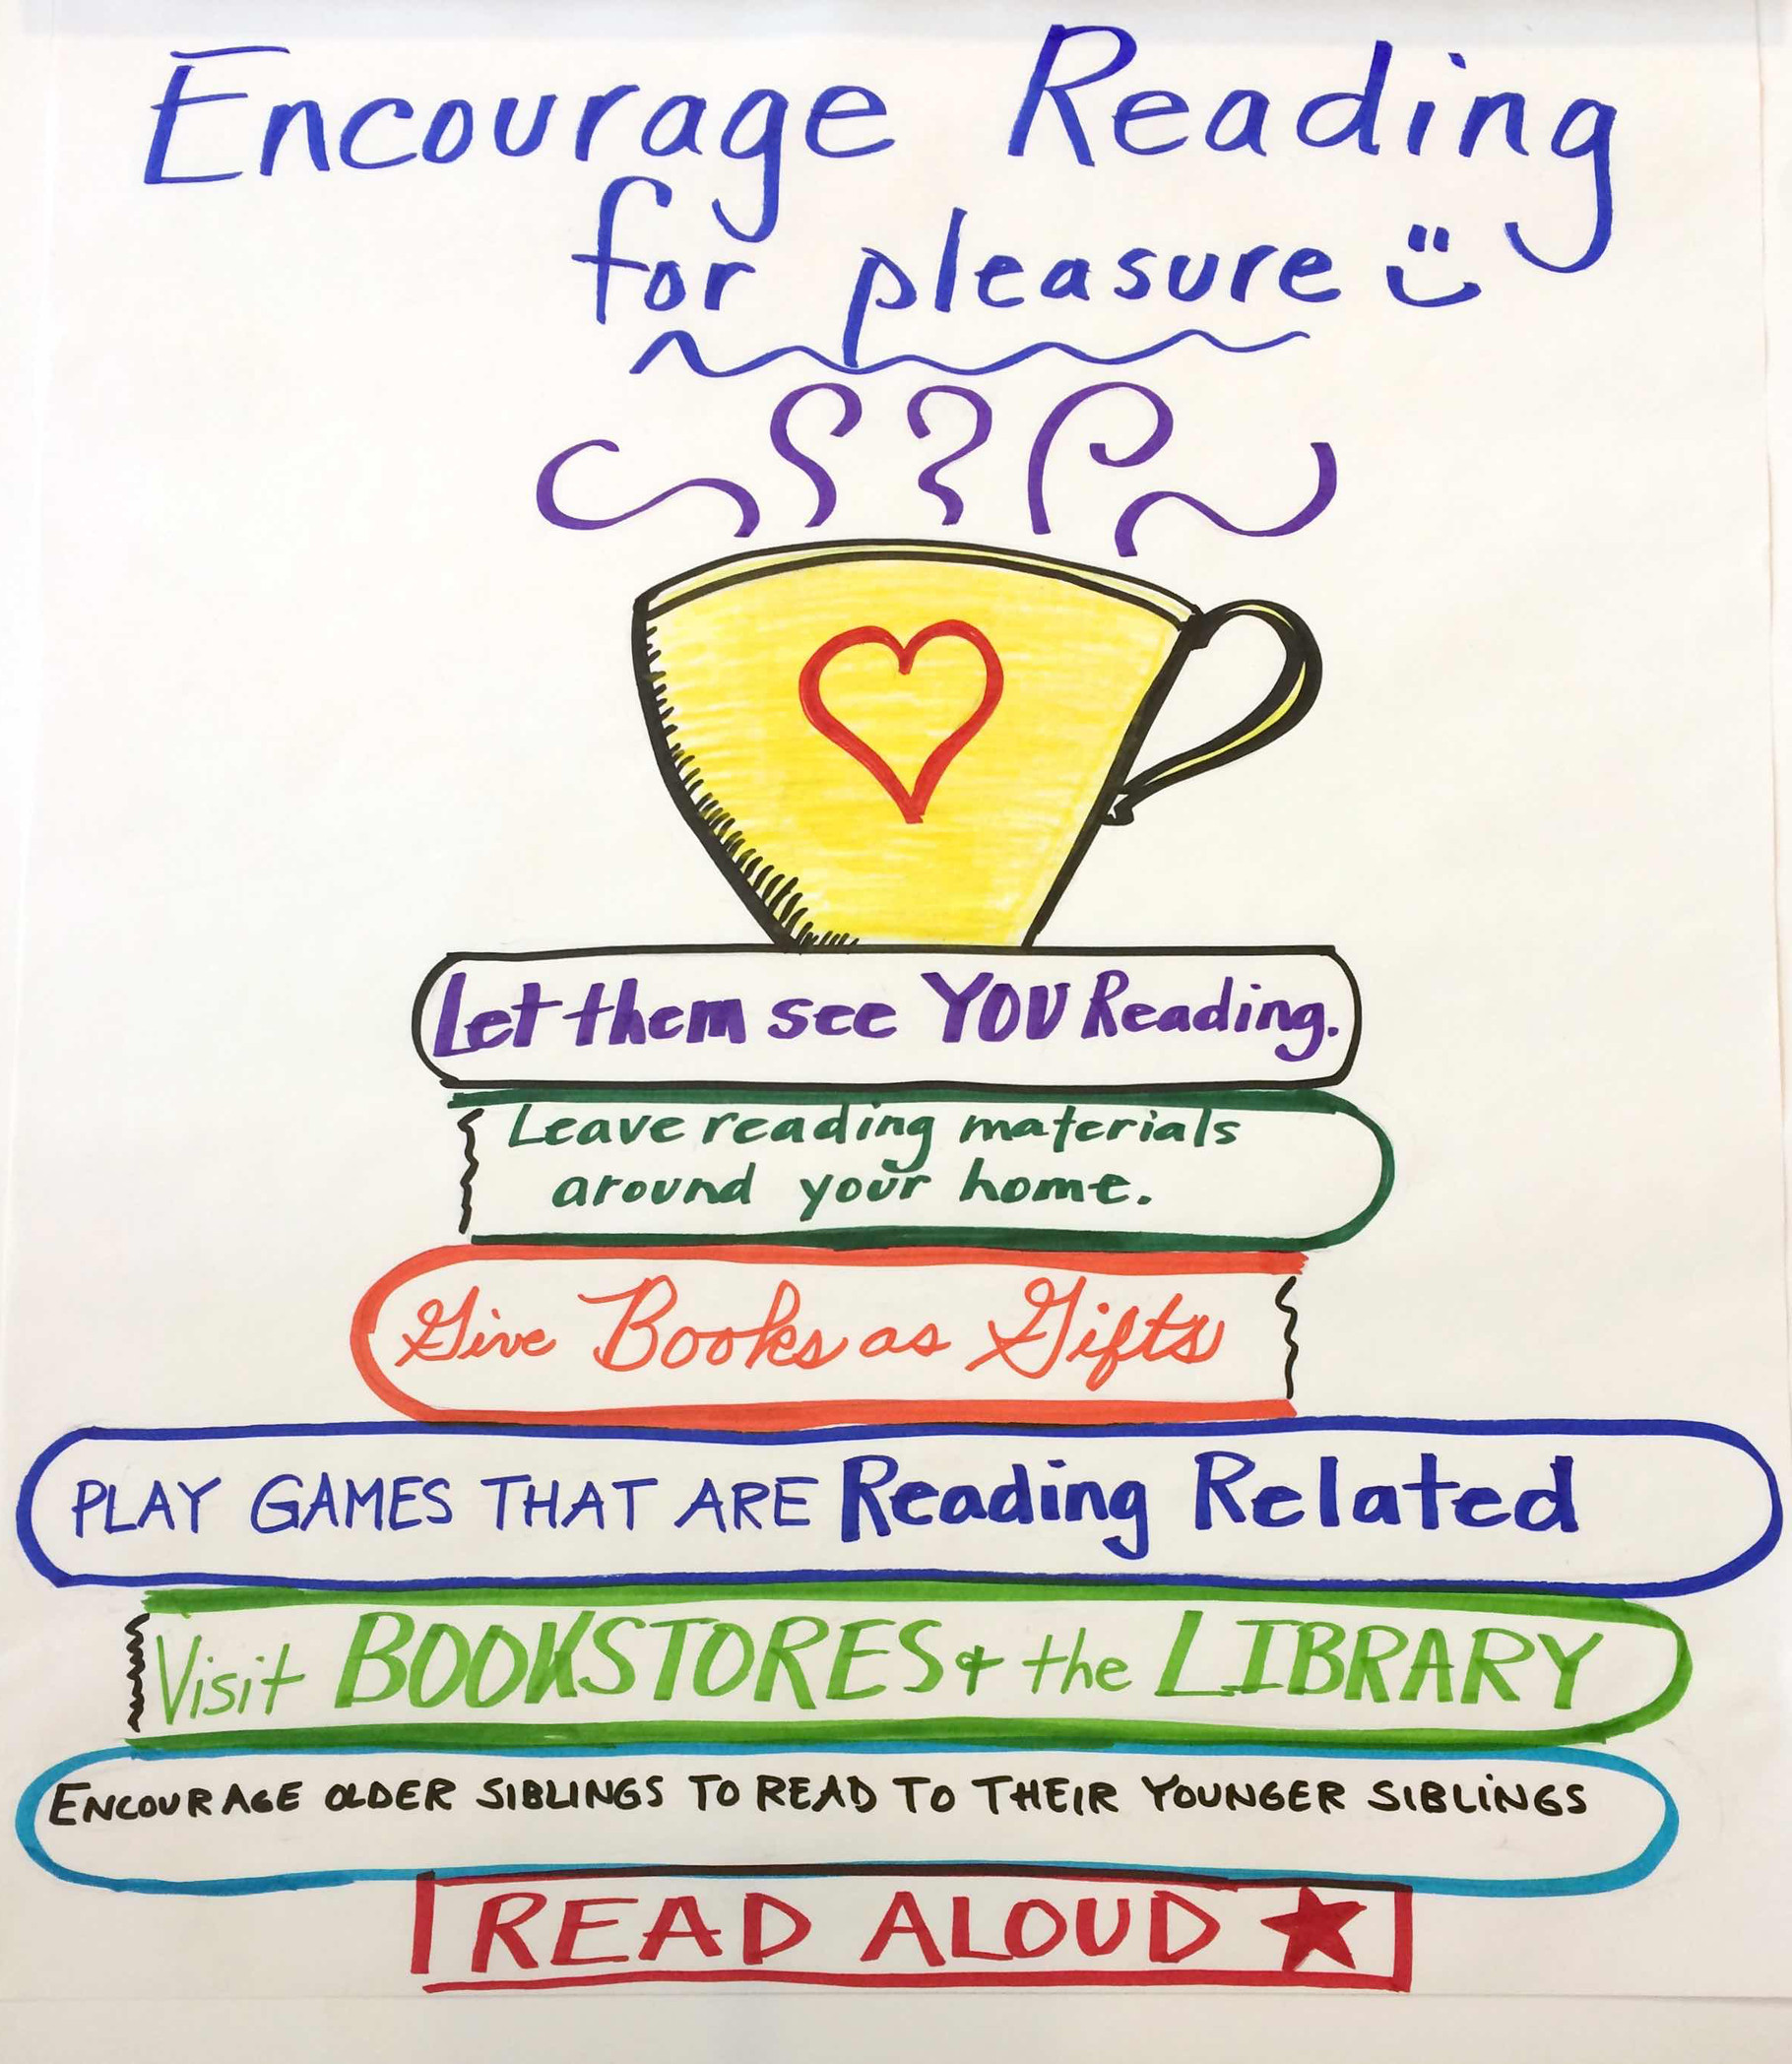 Encourage Reading
for pleasure
Let them see YOU Reading.
Leave reading materials
around your home.
Give Books as Gifts
PLAY GAMES THAT ARE Reading Related
Visit BOOKSTORES & the LIBRARY
ENCOURAGE OLDER SIBLINGS TO READ TO THEIR YOUNGER SIBLINGS
READ ALOUD